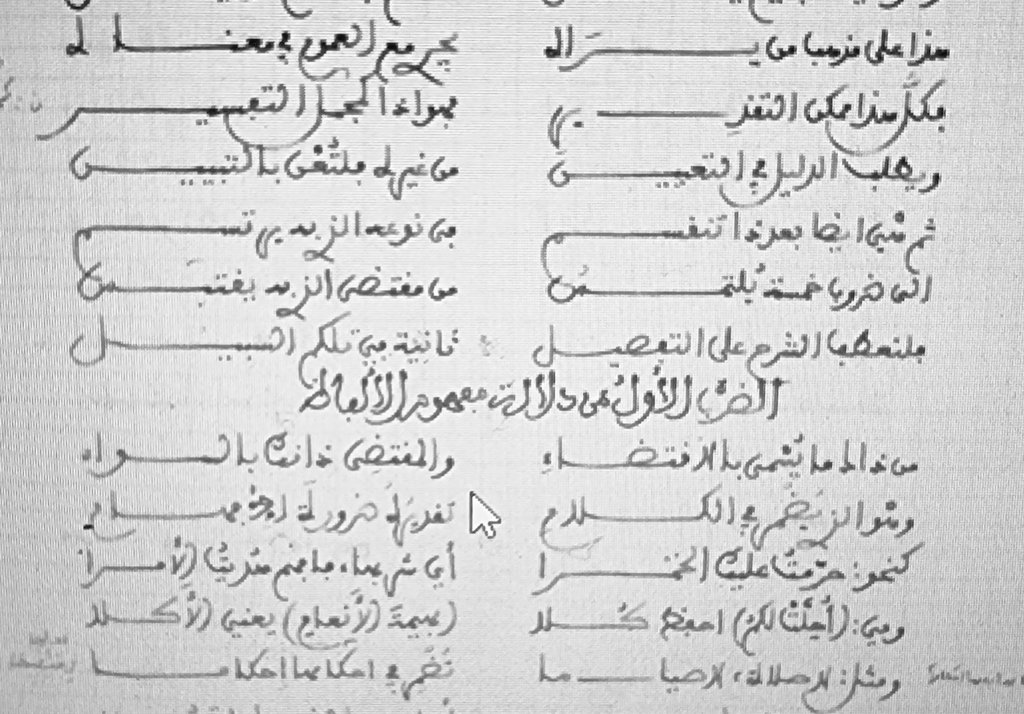 هذا على مذهب من يراه يجر مع العموم في معناه
فكل هذا ممكن التقدير فهو إذا المجمل التفسير
ويطلب الدليل في التعيين من غيره فلتغن بالتبيين
ثم هي أيضا بعد ذا تنقسم في نوعه الذي به تتسم
إلى ضروب خمسة يلتمس من مقتضى الذي به يقتبس
فلنعطها الشرح على التفصيل ثانية في تلكم السبيل
الضرب الأول من دلالة مفهوم الألفاظ
من ذاك ما يسمى بالاقتضاء والمقتضى ذا نصا بالسواء
وهو الذي يضمر في الكلام تقديره ضرورة
كنحو: حرمت علينا الخمرا أي شربها، فافهم هديت الأمرا
وفي: (أحلت لكم) احفظ كلا (بهيمة الأنعام) يعني الأكلا
ومثل: لا صلاة، لا صياما تضم في أحكامها أحكاما